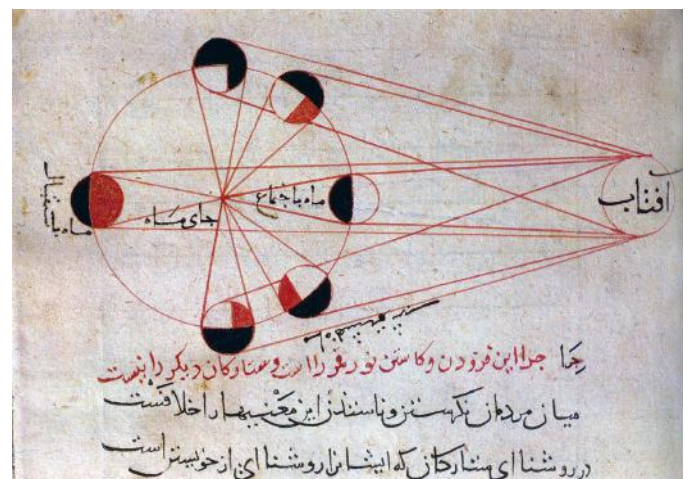 افتاب
ماه باجتماع
جای ماه
ماه باستقبال
چرا این فزودن وکاستن نور قمر راست وستارکان دیکر را نیست
میان مردمان این خلافست
در روشنای ستارکان که ایشانرا روشنای از خویشتن است